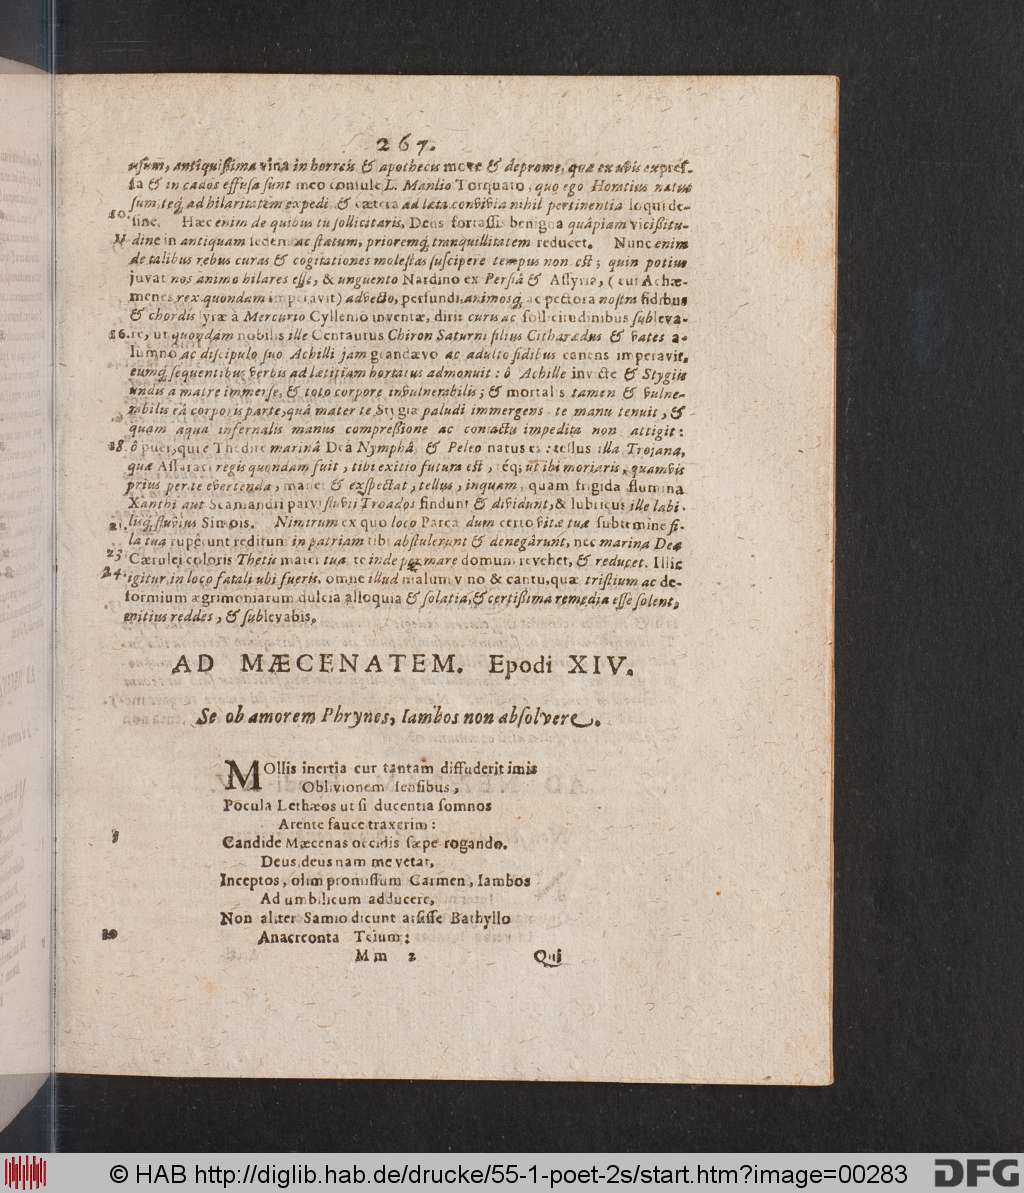 267.
usum, antiquißima vina in horreis & apothecis move & deprome, quæ ex uvis expres-
sa & in cados effusa sunt meo consule L. Manlio Torquato, quo ego Horatius natus
sum, teq́; ad hilaritatem expedi, & cætera ad læta convivia nihil pertinentia loqui de-
sine. Hæc enim de quibus tu sollicitaris, Deus fortassis benigna quâpiam vicißitu-
dine in antiquam sedem ac statum, prioremq́; tranquillitatem reducet. Nunc enim
de talibus rebus curas & cogitationes molestas suscipere tempus non est; quin potius
juvat nos animo hilares esse, & unguento Nardino ex Persiâ & Assyria, (cui Achæ-
menes rex quondam imperavit) advecto, perfundi, animosq́; ac pectora nostra fidibus
& chordis lyræ à Mercurio Cyllenio inventæ, diris curis ac sollicitudinibus subleva-
re, ut quondam nobilis ille Centaurus Chiron Saturni filius Citharœdus & vates a-
lumno ac discipulo suo Achilli jam grandævo ac adulto fidibus canens imperavit,
eumq́; sequentibus verbis ad lætitiam hortatus admonuit: ô Achille invicte & Stygiis
undis a matre immerse, & toto corpore invulnerabilis; & mortalis tamen & vulne-
rabilis eâ corporis parte, quâ mater te Stygia paludi immergens te manu tenuit, &
quam aqua infernalis manus compreßione ac contactu impedita non attigit:
ô puer, qui e Thetide marinâ Deâ Nymphâ, & Peleo natus es: tellus illa Trojana,
quæ Assaraci regis quondam fuit, tibi exitio futura est, téq; ut ibi moriaris, quamvis
prius per te evertenda, manet & exspectat, tellus, inquam, quam frigida flumina
Xanthi aut Scamandri parvi fluvii Troados findunt & dividunt, & lubricus ille labi-
lisq́; fluvius Simois. Nimirum ex quo loco Parca dum certo vitæ tuæ subtemine fi-
la tua rupêrunt reditum in patriam tibi abstulerunt & denegârunt, nec marina Dea
Cærulei coloris Thetis mater tua te inde per mare domum revehet, & reducet. Illic
igitur, in loco fatali ubi fueris, omne illud malum vino & cantu, quæ tristium ac de-
formium ægrimoniarum dulcia alloquia & solatia, & certißima remedia esse solent,
mitius reddes, & sublevabis.
10.
11
16.
18.
21.
23
24.
AD MÆCENATEM. Epodi XIV.
Se ob amorem Phrynes, Iambos non absolvere.
MOllis inertia cur tantam diffuderit imis
Oblivionem sensibus,
Pocula Lethæos ut si ducentia somnos
Arente fauce traxerim:
5 Candide Mæcenas occidis sæpe rogando.
Deus, deus nam me vetat,
Inceptos, olim promissum Carmen, Iambos
Ad umbilicum adducere,
Non aliter Samio dicunt arsisse Bathyllo
10 Anacreonta Teium:
Mm 2 Qui
© HAB http://diglib.hab.de/drucke/55-1-poet-2s/start.htm?image=00283 DFG